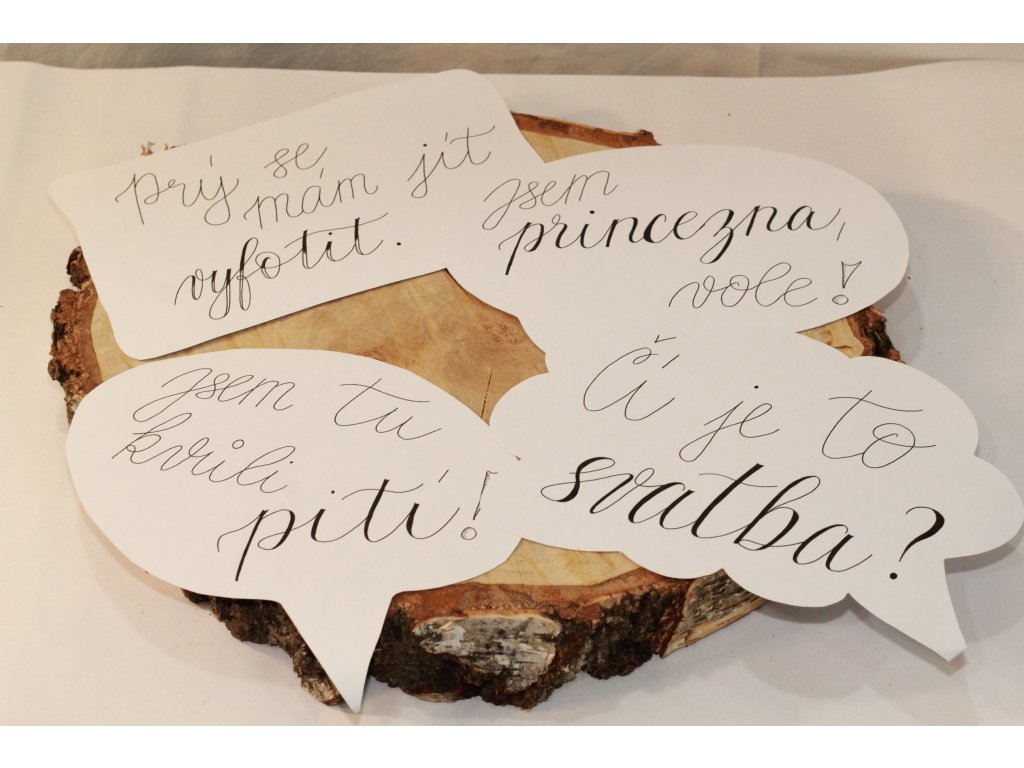 prý se
mám jít
vyfotit.
jsem
princezna,
vole!
jsem tu
kvůli
pití!
Čí je to
svatba?